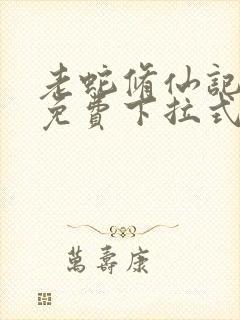 老蛇脩仙記
免費下拉式
萬壽康